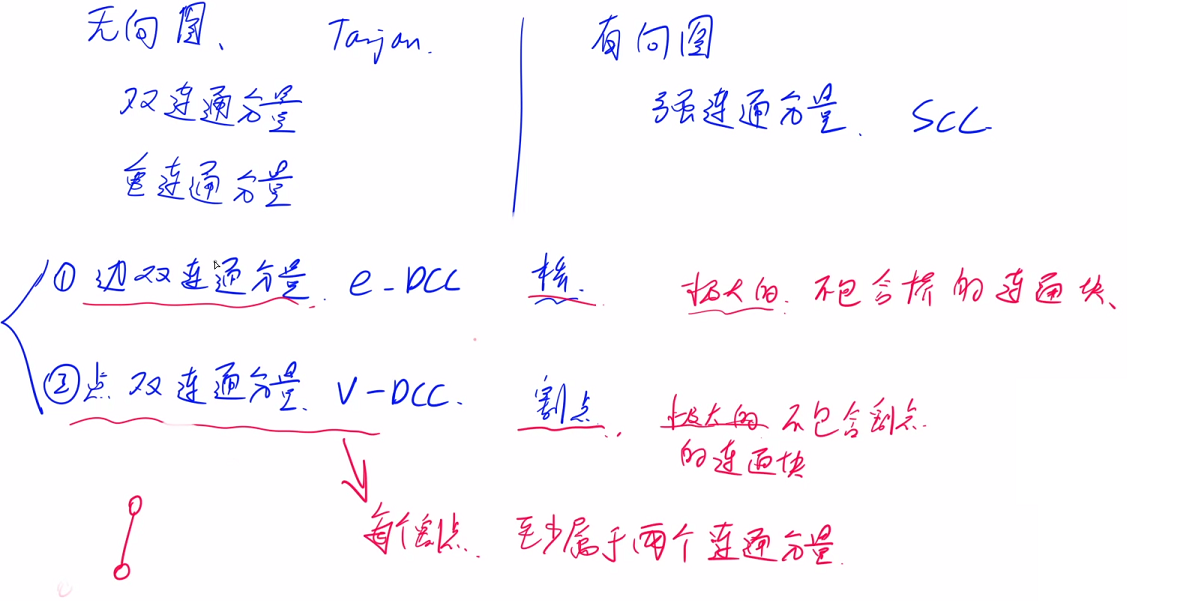 无向图、 Tarjan. 有向图
双连通分量 强连通分量. SCC
重连通分量
① 边双连通分量. e-DCC 桥. 极大的. 不包含桥的连通块、
② 点双连通分量. V-DCC. 割点. 极大的 不包含割点
的连通块
每个割点. 至少属于两个连通分量.